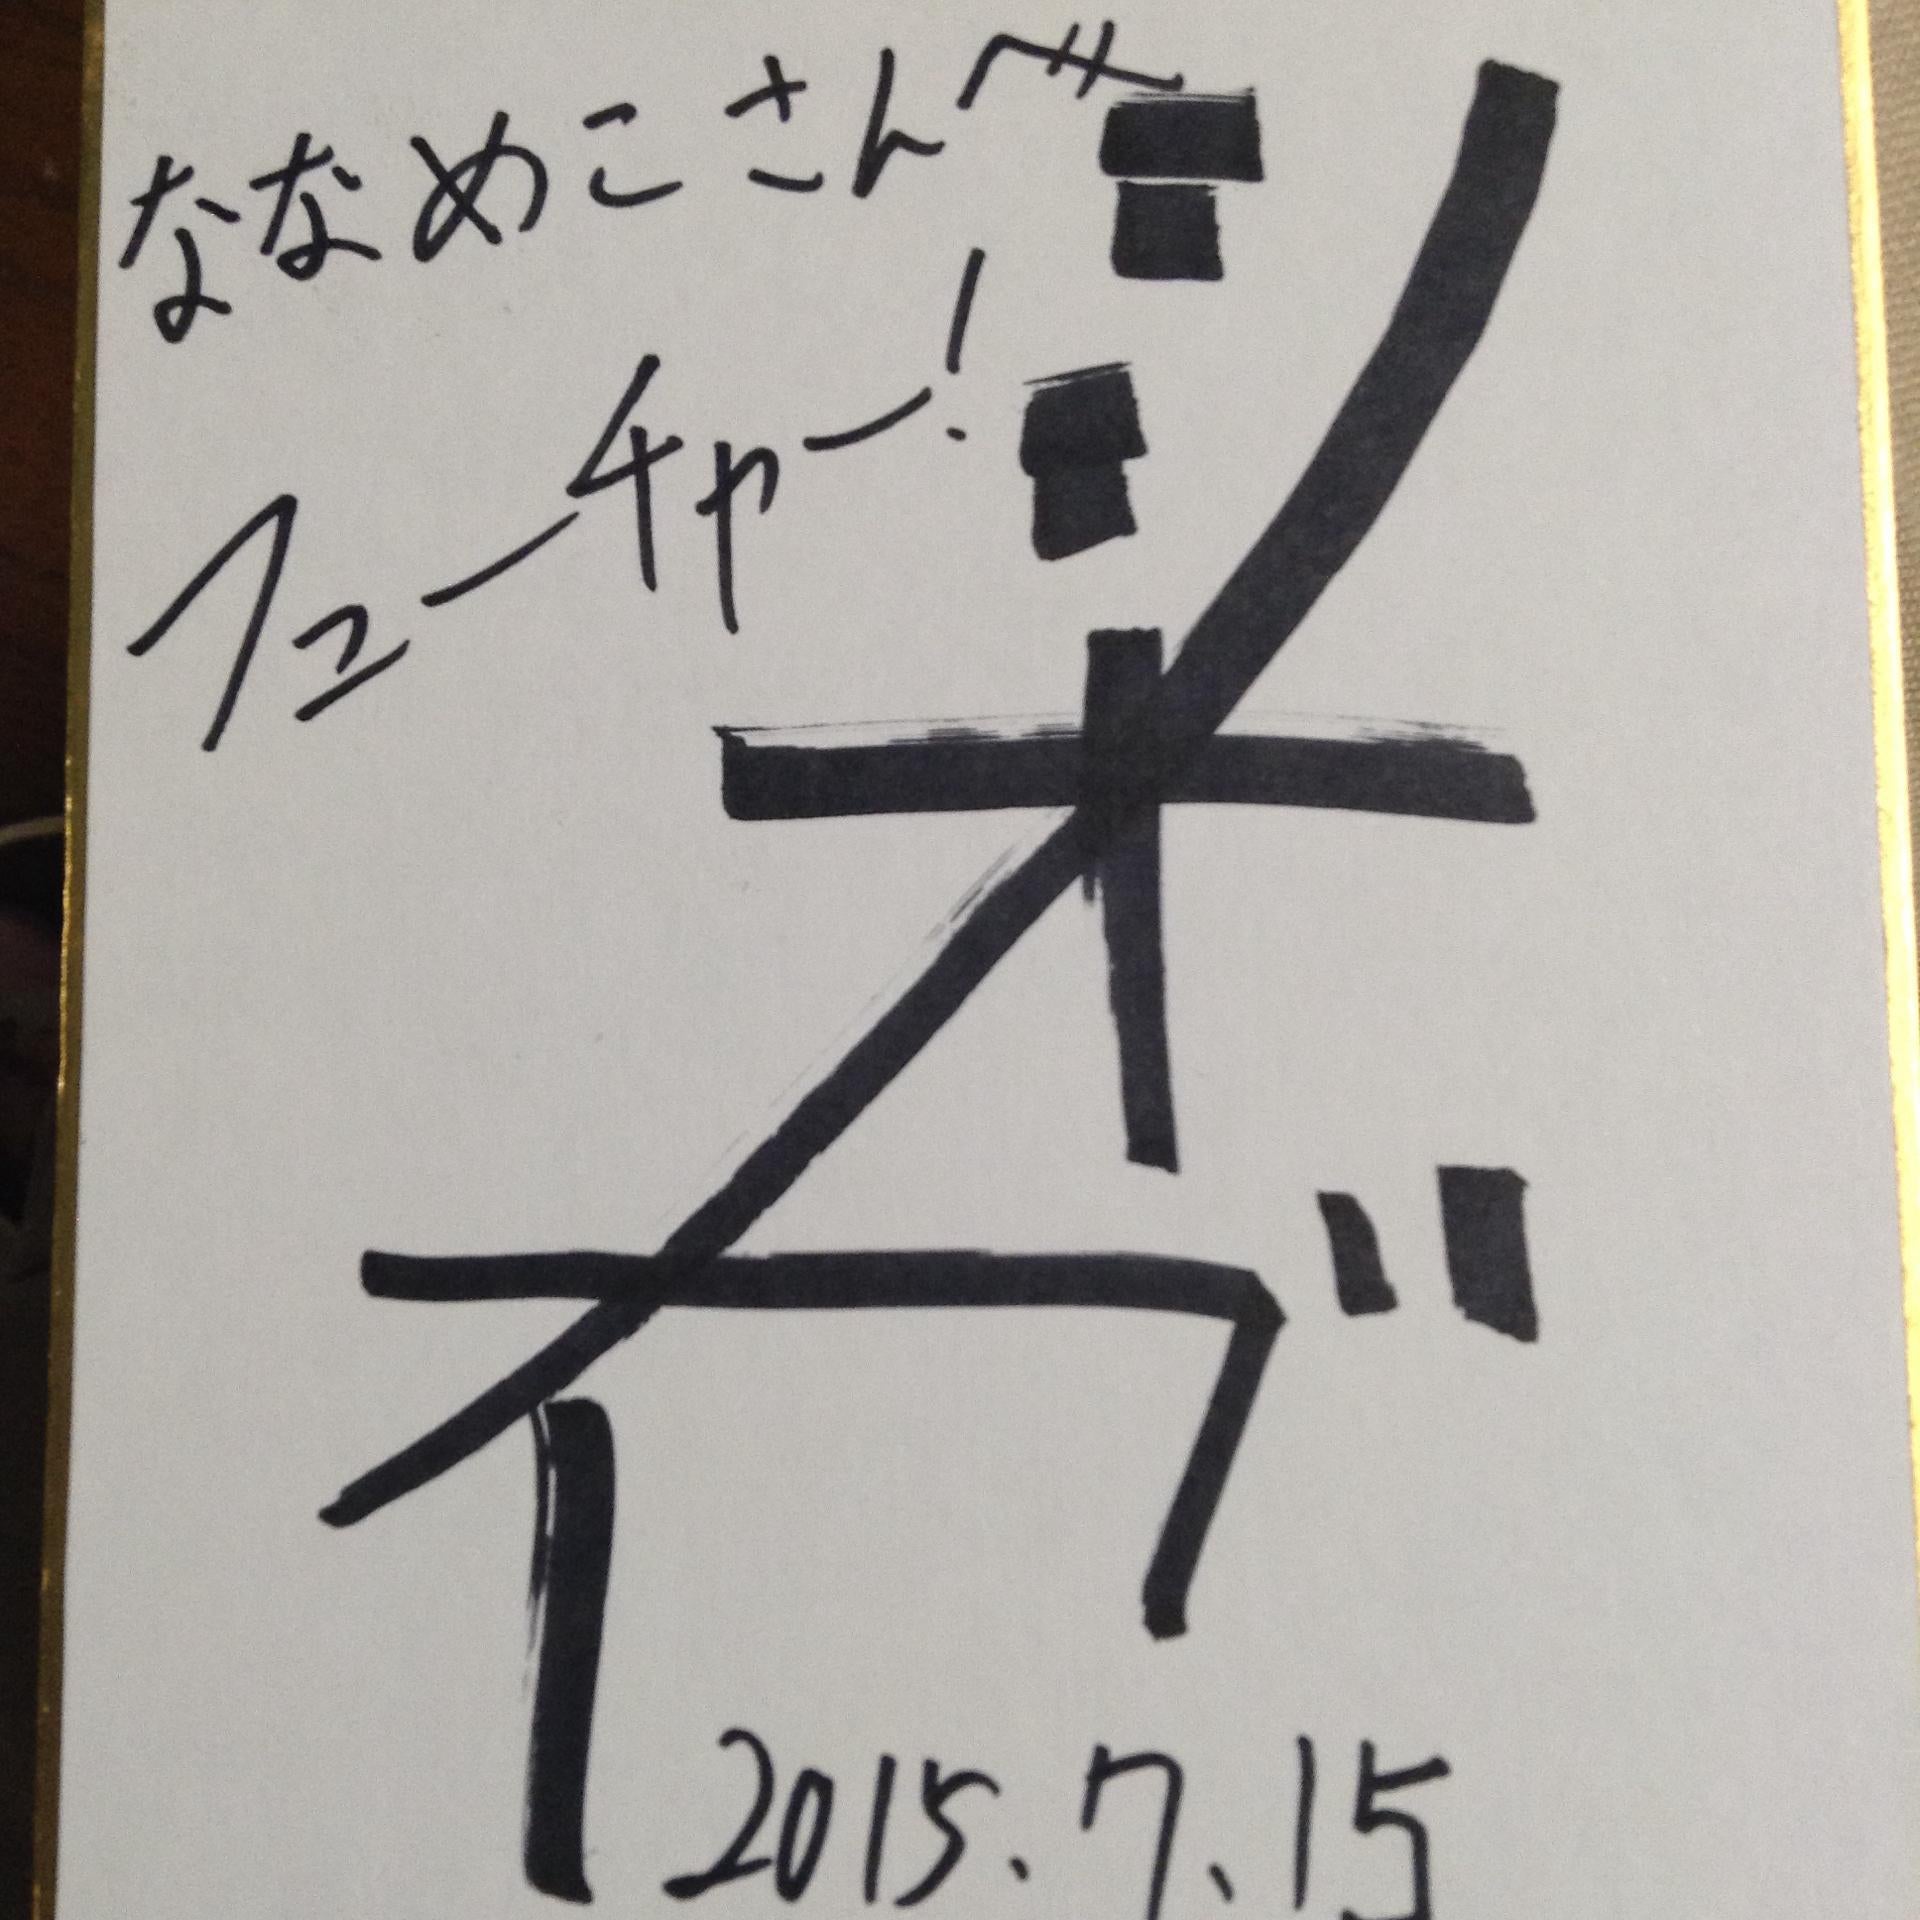 ななめこさんへ
フューチャー!
2015.7.15